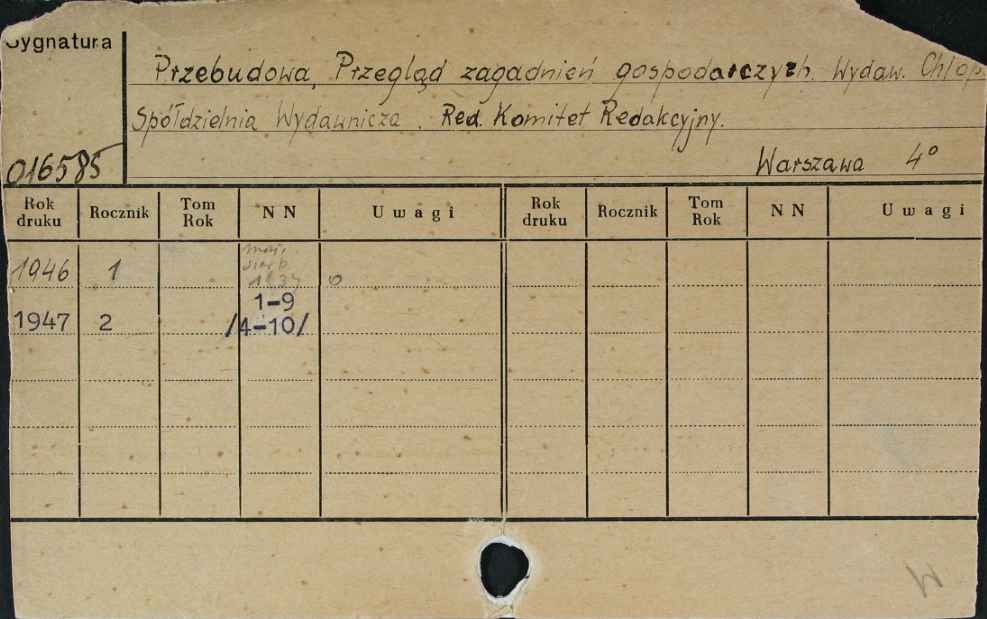 Sygnatura
Przebudowa, Przegląd zagadnień gospodarczych. Wydaw. Chłop.
Spółdzielnia Wydawnicza. Red. Komitet Redakcyjny.
016585 Warszawa 4°
Rok druku Rocznik Tom Rok N N Uwagi Rok druku Rocznik Tom Rok N N Uwagi
maj,
sierp
1946 1
1-9
1947 2 /4-10/